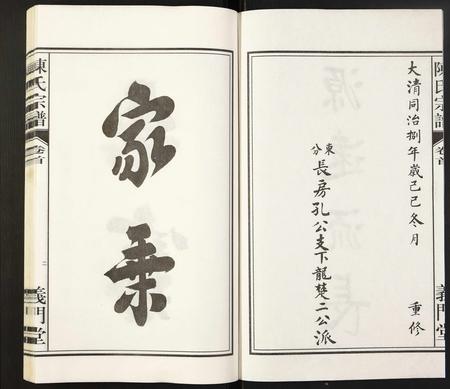 陳氏宗譜
卷首
義門堂
大清同治捌年歲己巳冬月
重修
東分
長房孔公支下龍楚二公派
家乘
陳氏宗譜
卷首
二
義門堂